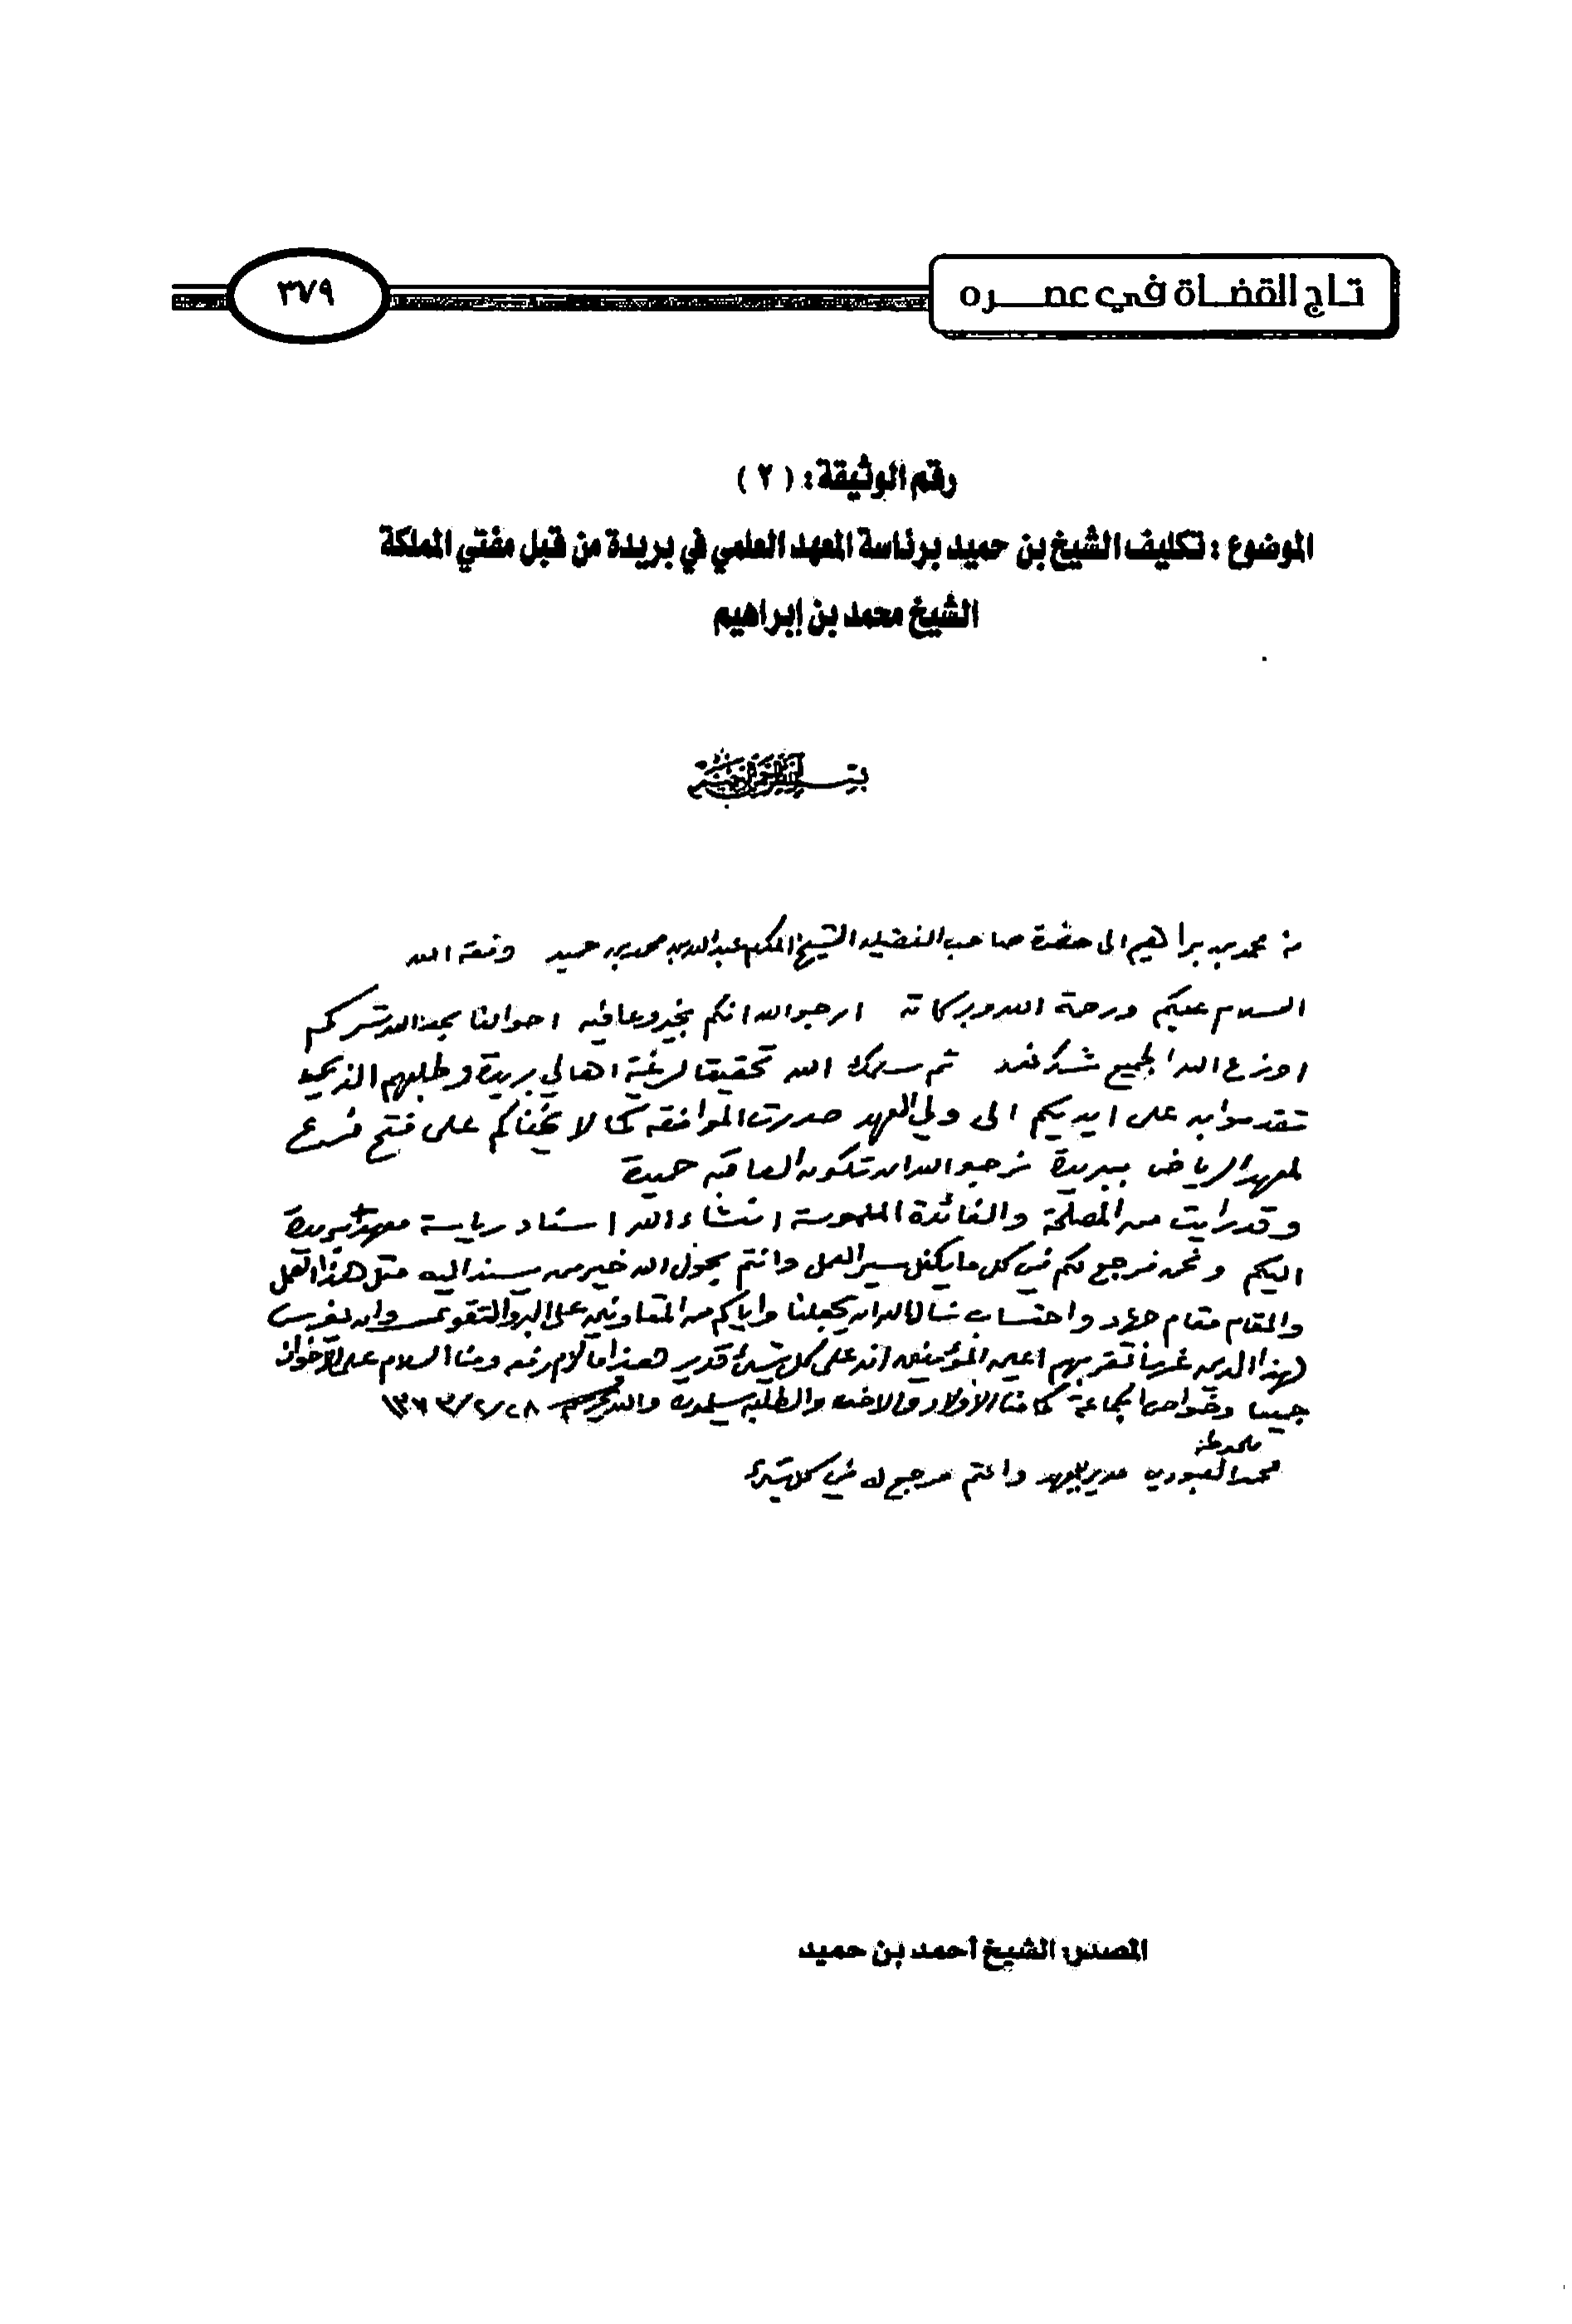 تاج القضاة في عصره
٣٧٩
رقم الوثيقة : ( ٢ )
الموضوع : تكليف الشيخ بن حميد برئاسة المعهد العلمي في بريدة من قبل مفتي المملكة
الشيخ محمد بن إبراهيم
بسم الله الرحمن الرحيم
من محمد بن براهيم الى حضرة صاحب الفضيلة الشيخ المكرم عبد الله بن محمد بن حميد وفقه الله
السلام عليكم ورحمة الله وبركاته ارجو الله انكم بخير وعافيه احوالنا بحمد الله تسركم
اوزع الله الجميع شكر نعمه ثم سلمك الله تحقيقا لرغبة اهالي بريدة وطلبهم الذي
تقدموا به على ايديكم الى ولي العهد صدرت الموافقه كما لا يخفاكم على فتح فرع
لمعهد الرياض ببريدة نرجو الله ان تكون العاقبه حميدة
وقد رايت من المصلحة والفائدة الملموسة انشاء الله اسناد رياسة معهد بريدة
اليكم ونحن نرجع لكم في كل ما يكفل سير العمل وانتم بحول الله خير من يسند اليه مثل هذا العمل
والمقام مقام جهاد واحتساب نسال الله ان يجعلنا واياكم من المتعاونين على البر والتقوى وان يغرس
لهذا الدين غرسا تقر بهم اعين المؤمنين انه على كل شيئ قدير هذا ما لزم رفعه ومنا السلام على الاخوان
جميعا وخواص الجماعة كما منا الاولاد والاخوه والطلبه يسلمون والله يحفظكم ١٣٧٣/٢/٢٨
ملحوظه
محمد العبودي مدير للمعهد وانتم مرجع له في كل شيئ
المصدر: الشيخ أحمد بن حميد